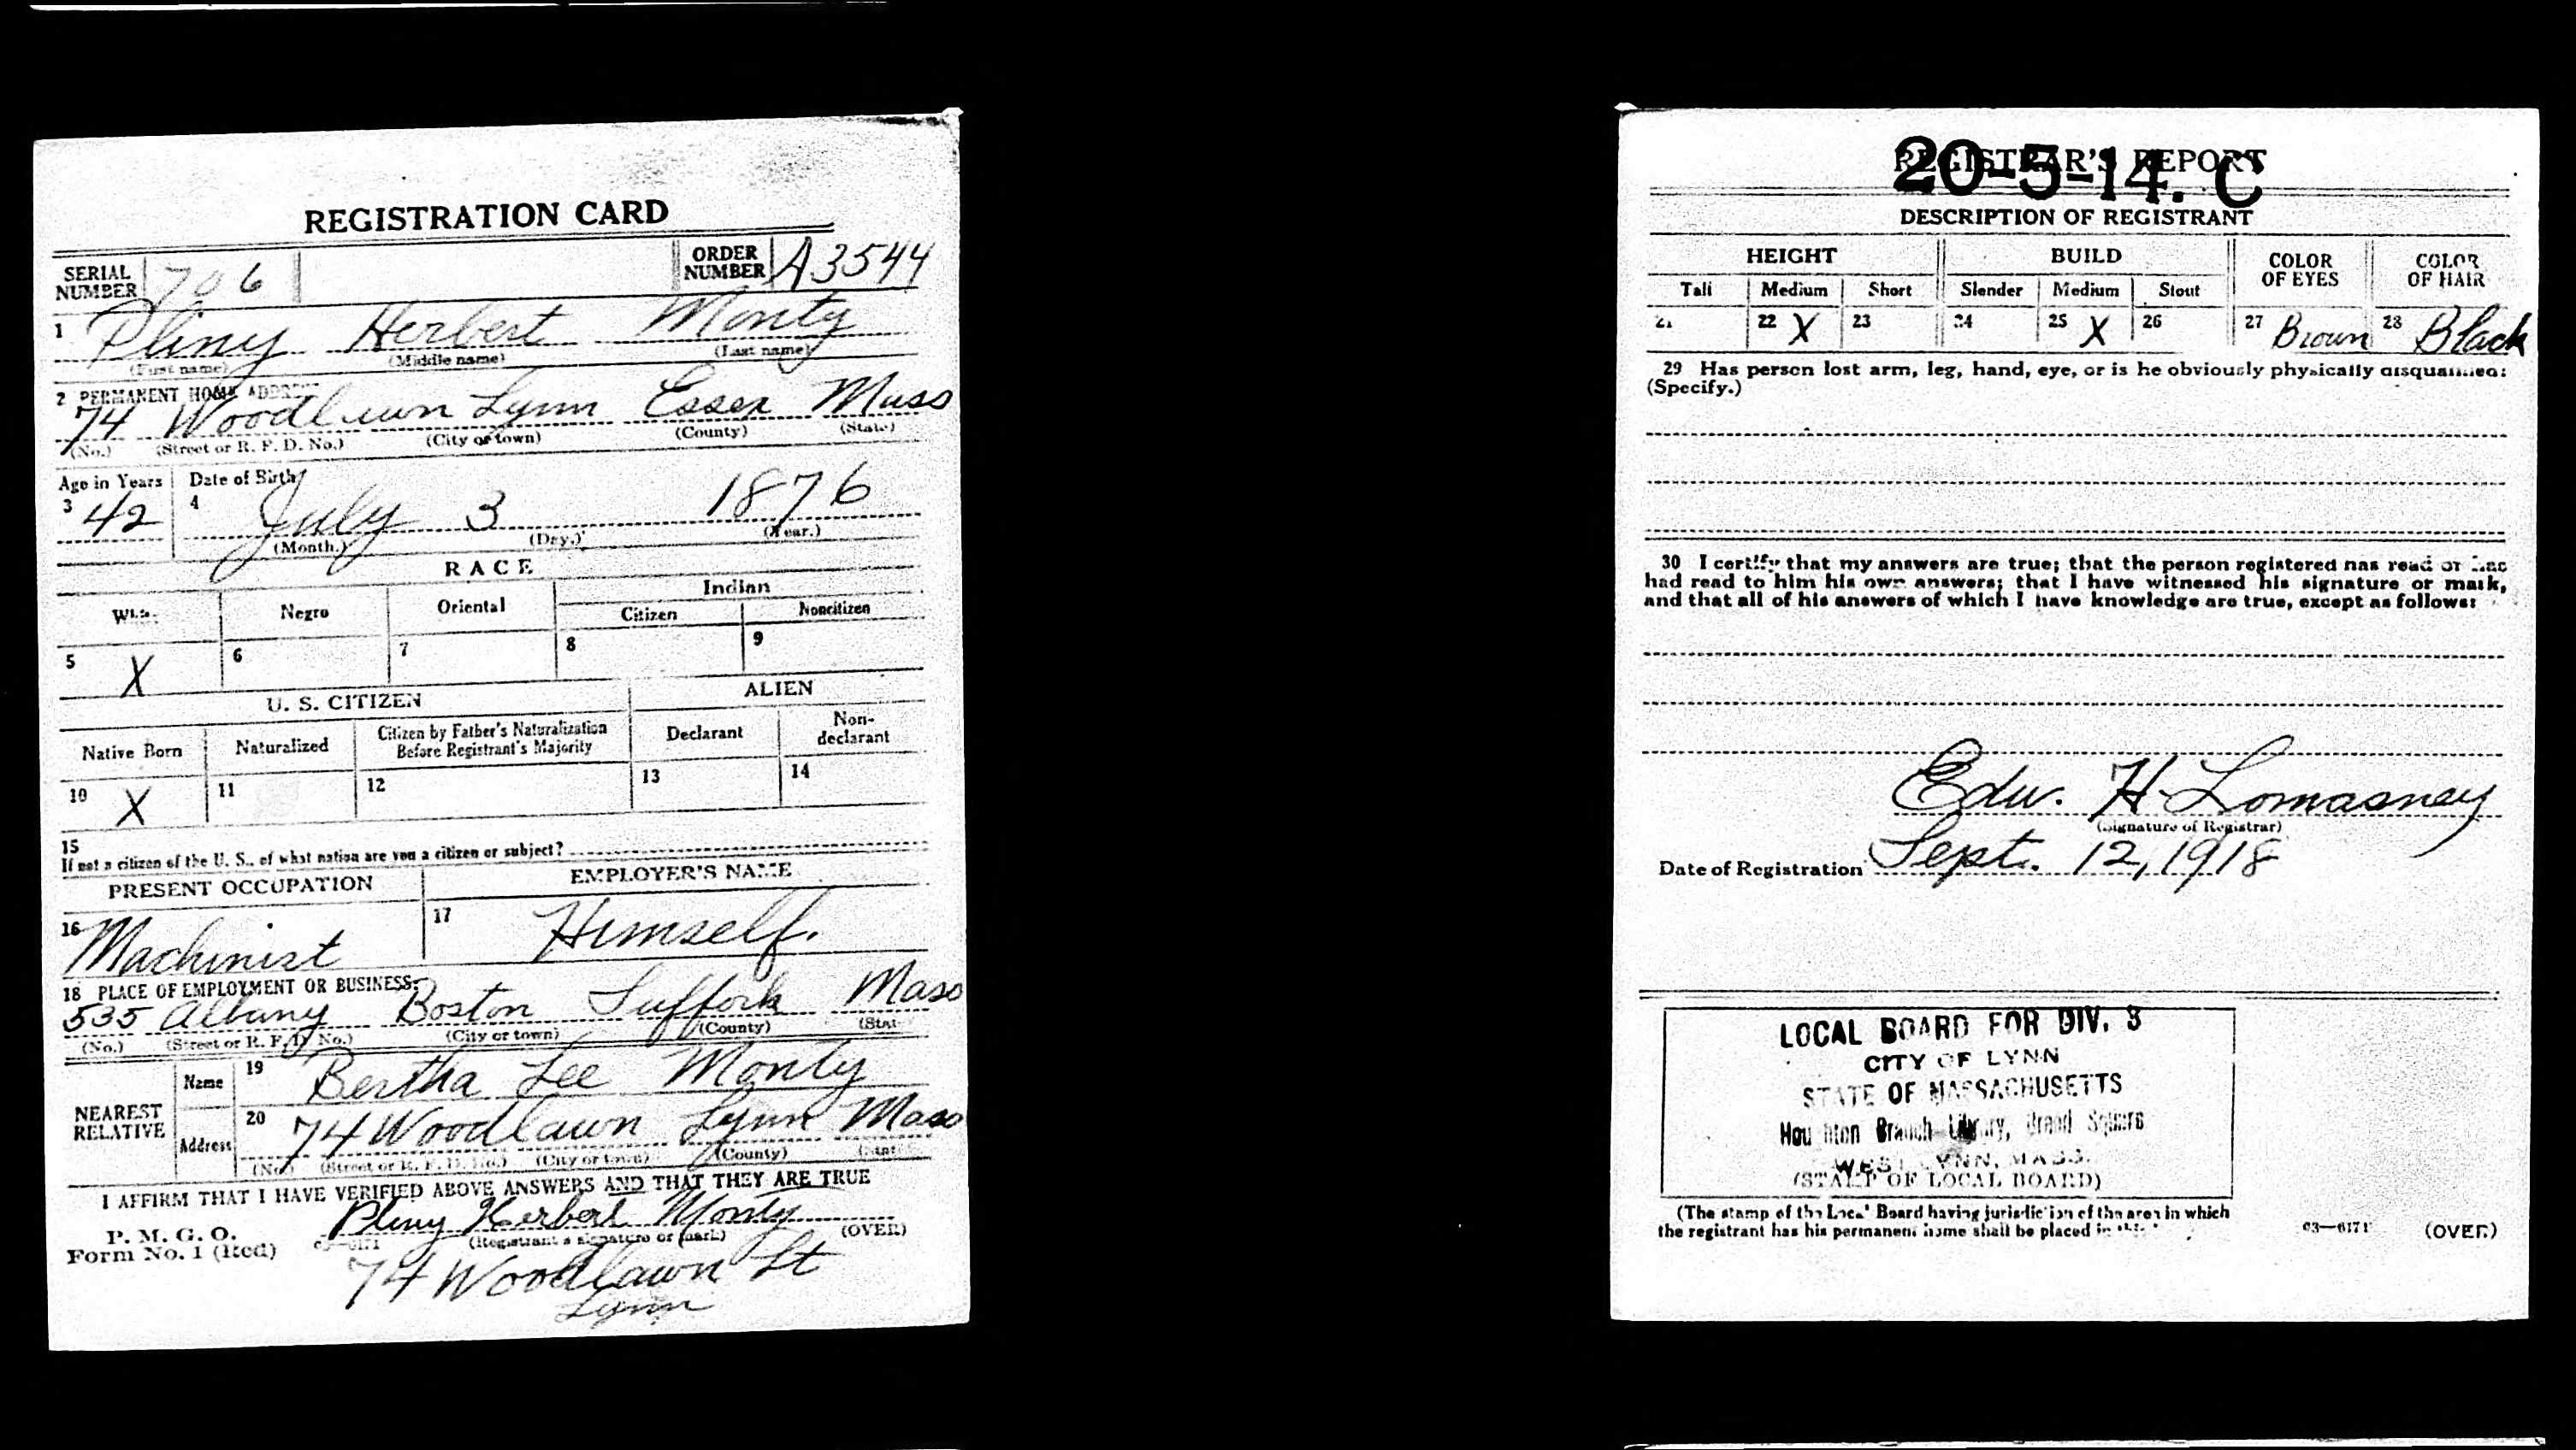 REGISTRATION CARD
SERIAL NUMBER 706 ORDER NUMBER A3544
1 Pliny Herbert Monty
(First name) (Middle name) (Last name)
2 PERMANENT HOME ADDRESS
74 Woodlawn Lynn Essex Mass
(No.) (Street or R. F. D. No.) (City or town) (County) (State)
Age in Years Date of Birth
3 42 4 July 3 1876
(Month.) (Day.) (Year.)
RACE
White Negro Oriental Indian
Citizen Noncitizen
5 X 6 7 8 9
U. S. CITIZEN ALIEN
Native Born Naturalized Citizen by Father's Naturalization Before Registrant's Majority Declarant Non-declarant
10 X 11 12 13 14
15
If not a citizen of the U. S., of what nation are you a citizen or subject?
PRESENT OCCUPATION EMPLOYER'S NAME
16 Machinist 17 Himself.
18 PLACE OF EMPLOYMENT OR BUSINESS:
535 Albany Boston Suffolk Mass
(No.) (Street or R. F. D. No.) (City or town) (County) (State)
NEAREST RELATIVE
Name 19 Bertha Lee Monty
Address 20 74 Woodlawn Lynn Mass
(No.) (Street or R. F. D. No.) (City or town) (County) (State)
I AFFIRM THAT I HAVE VERIFIED ABOVE ANSWERS AND THAT THEY ARE TRUE
P. M. G. O.
Form No. 1 (Red) Pliny Herbert Monty
(Registrant's signature or mark) (OVER)
74 Woodlawn St
Lynn
REGISTRAR'S REPORT
20-5-14. C
DESCRIPTION OF REGISTRANT
HEIGHT BUILD COLOR OF EYES COLOR OF HAIR
Tall Medium Short Slender Medium Stout
21 22 X 23 24 25 X 26 27 Brown 28 Black
29 Has person lost arm, leg, hand, eye, or is he obviously physically disqualified?
(Specify.)
30 I certify that my answers are true; that the person registered has read or has
had read to him his own answers; that I have witnessed his signature or mark,
and that all of his answers of which I have knowledge are true, except as follows:
Edw. H. Lomasney
(Signature of Registrar)
Date of Registration Sept. 12, 1918
LOCAL BOARD FOR DIV. 3
CITY OF LYNN
STATE OF MASSACHUSETTS
Houghton Branch Library, Broad Square
WEST LYNN, MASS.
(STAMP OF LOCAL BOARD)
(The stamp of the Local Board having jurisdiction of the area in which
the registrant has his permanent home shall be placed in this
03—6171 (OVER)